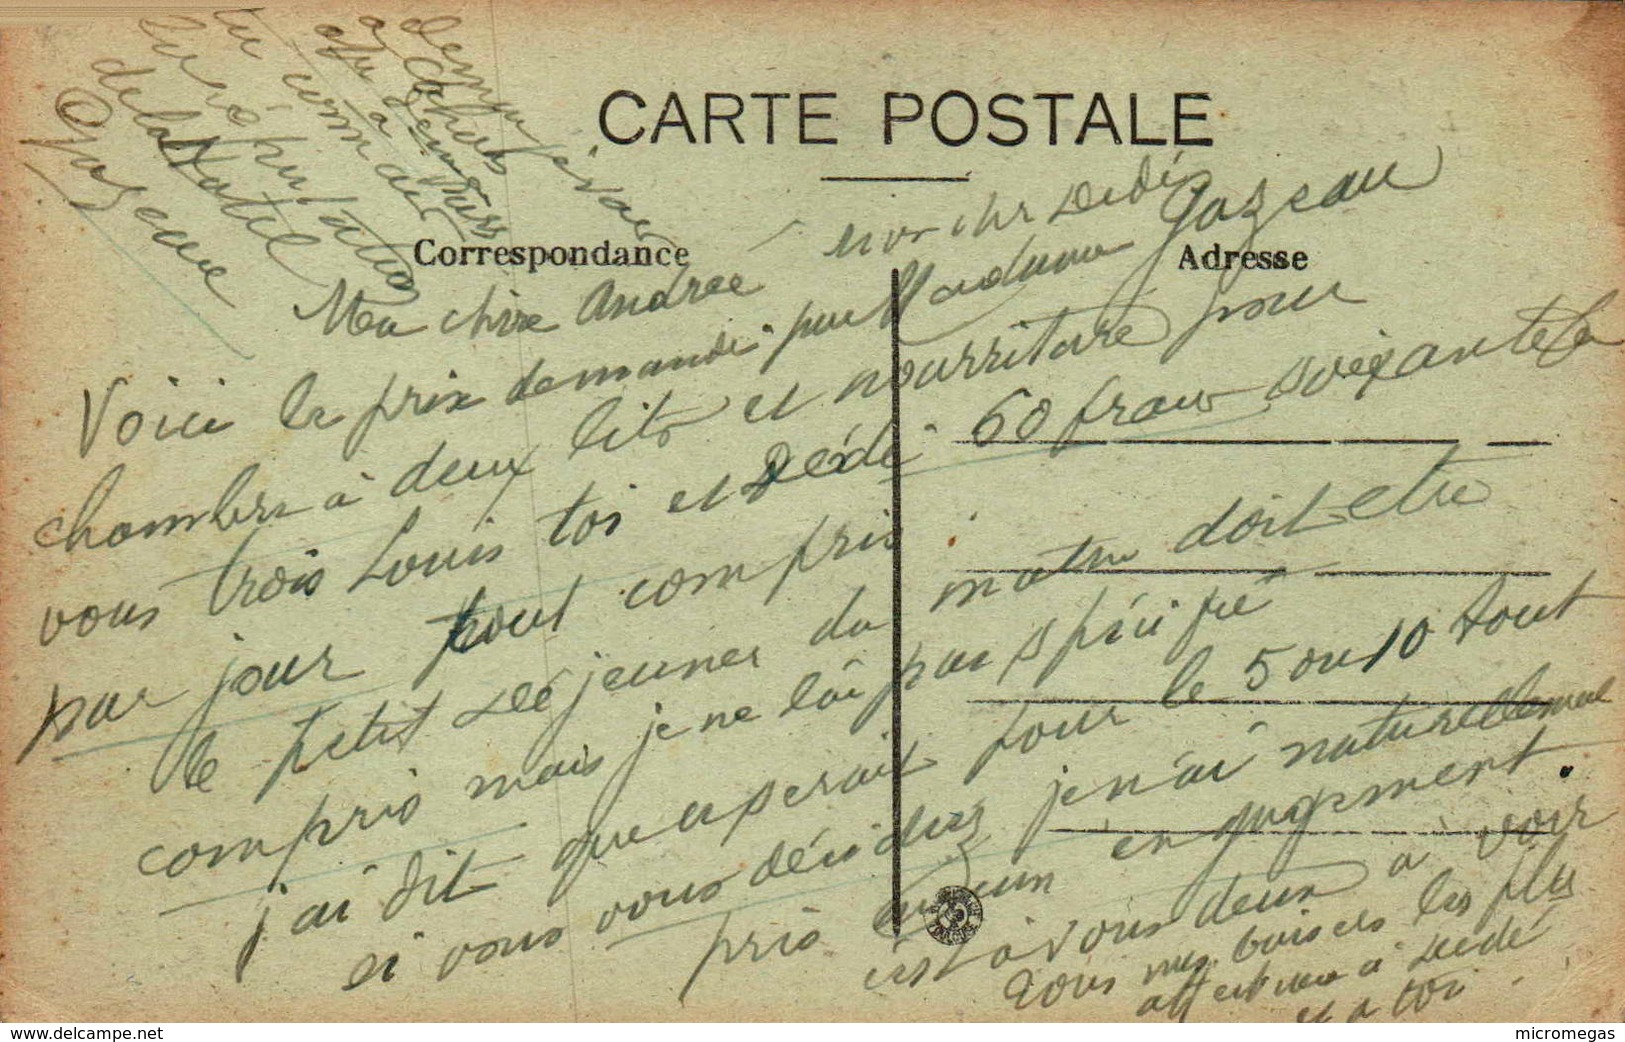 CARTE POSTALE
Correspondance
Adresse
Ma chère Andrée mon cher Dédé
Voici le prix demandé par Madame Gazeau
chambre à deux lits et nourriture pour
vous trois Louis toi et Dédé 60 francs soixante
par jour tout compris
le petit déjeuner du matin doit être
compris mais je ne l'ai pas spécifié
j'ai dit que ce serait pour le 5 ou 10 Aout
si vous vous décidez je n'ai naturellement
pris aucun engagement.
c'est à vous deux à voir
Tous mes baisers les plus
affectueux à Dédé
et à toi
demain
tu connais
la réputation
de la Hotel
Gazeau
delcampe.net
micromegas